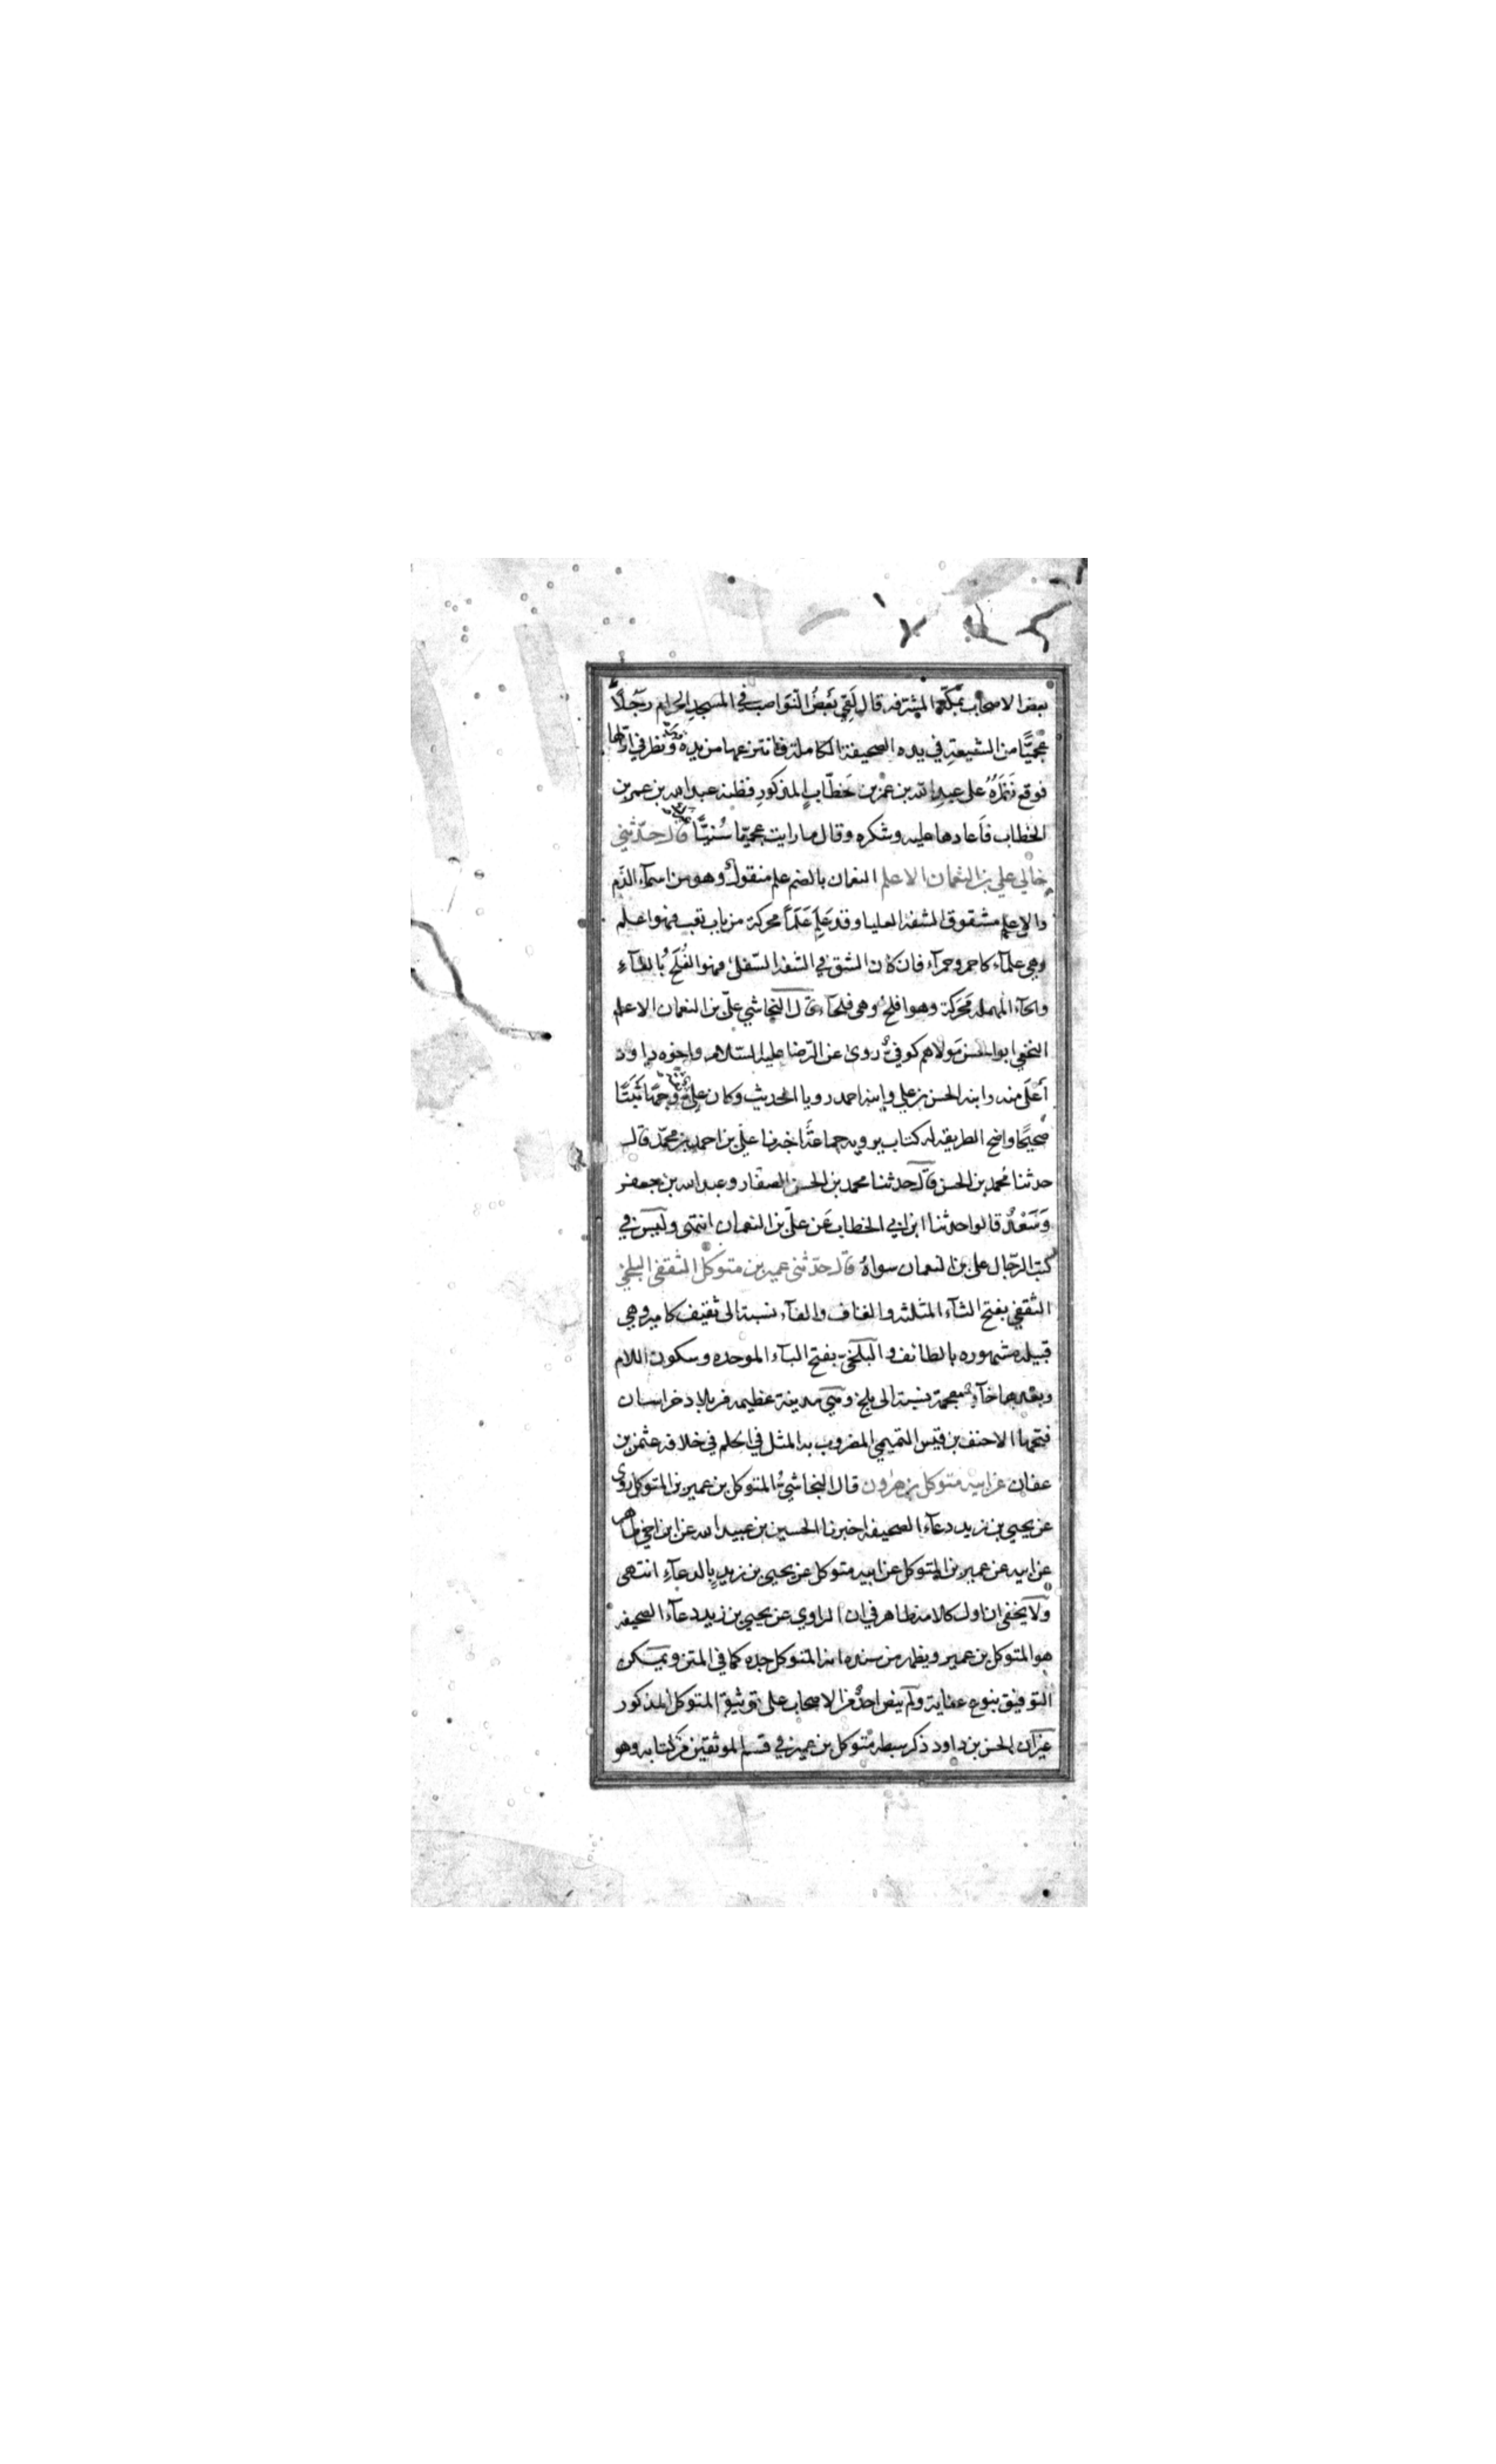 بعض الاصحاب بمكة المشرفه قال لَقِيَ بَعْضُ النّواصب في المسجد الحرام رَجُلاً
عجميًّا من الشيعةِ في يده الصحيفة الكاملة فانتزعها من يده ونظر في اوّلها
فوقع نَظَرُهُ على عبد الله بن عمر بن خَطّابٍ المذكورِ فظنه عبد الله بن عمر بن
الخطاب فَاَعادها عليه وشكره وقال ما رايت عجميّا سُنيًّا قال حدّثني
خالي علي بن النعمان الاعلم النعمان بالضم علم منقول وهو من اسمآء الدَّم
والاعلم مشقوق الشفه العليا وقد عَلِمَ عَلَمًا محركة من باب تعب فهو اعلم
وهي علمآء كاحمر وحمرآء فان كان الشق في الشفه السّفلى فهو الفُلَحُ بالفآءِ
والحآء المهمله مُحَرَكة وهو افلح وهي فلحآء قال النجاشي علّي بن النعمان الاعلم
النخعي ابو الحسن مولاهم كوفيّ روى عن الرّضا عليه السّلام واخوه داود
أَعْلَى منه وابنه الحسن بن علي وابنه احمد رويا الحديث وكان عليّ وَجْهًا ثَبَتًا
صَحيحًا واضح الطريقه له كتاب يرويه جماعةٌ اخبرنا علي بن احمد بن محمّد قال
حدثنا محمد بن الحسن قال حدثنا محمد بن الحسن الصفار وعبد الله بن جعفر
وَسَعْدٌ قالوا حدثنا ابن ابي الخطاب عَن عليّ بن النعمان انتهى وليس في
كتب الرّجال على بن النعمان سواهُ قال حدّثنى عمير بن متوكل الثقفى البلخي
الثقفي بفتح الثآء المثلثه والقاف والفآء نسبة الى ثقيف كامير وهي
قبيله مشهوره بالطائف والبلخيّ بفتح البآء الموحده وسكون اللام
وبعدها خآء معجمة نسبة الى بلخ وهي مدينة عظيمه من بلاد خراسان
فتحها الاحنف بن قيس التميمي المضروب به المثل في الحلم في خلافه عثمن بن
عفان عن ابيه متوكل بن هرون قال النجاشيُّ المتوكل بن عمير بن المتوكل روى
عن يحيى بن زيد دعآء الصحيفه اخبرنا الحسين بن عبيد الله عن ابن اخي طاهر
عن ابيه عن عمير بن المتوكل عن ابيه متوكل عن يحيى بن زيدٍ بالدعآءِ انتهى
ولا يخفى ان اول كلامه ظاهر في ان الراوي عن يحيى بن زيد دعآء الصحيفه
هو المتوكل بن عمير ويظهر من سنده انه المتوكل جده كما في المتن ويمكن
التوفيق بنوع عناية ولم ينص احدٌ من الاصحاب على توثيق المتوكل المذكور
غير ان الحسن بن داود ذكر سبطه متوكل بن عمير في قسم الموثقين من كتابه وهو